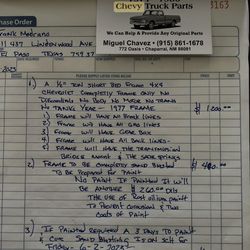 Chevy Truck Parts
We Can Help & Provide You With An Original
Miguel Chavez • (915) 861-1678
772 Oasis • Chaparral, NM 88081
3163
chase Order
Frank Medrano
11437 Lindenwood Ave
El Paso Texas 79937
PLEASE SUPPLY LISTED ITEMS BELOW
1.) A ½ Ton Short Bed Found 4x4
Chevrolet Complete Frame Only No
Drivetrain No Body No Motor No Trans
No Trans Year - 1977 Frame $1,000.00
1 Frame will have all Front Lines
2 Frame will have all gas lines
3 Frame will have Gear Box
4 Frame will have all Back Lines
5 Frame will have the Transmission
Bridge Mount & The same springs
2. Frame to be completely sand Blasted $480.00
to be prepared for paint
No paint if painted it will
be another $260.00
The use of Rust oleum paint
to prevent corrosion & Two
coats of paint
3) If painted required a 3 Days to paint
& cure Sand Blasting is on sch for
Friday